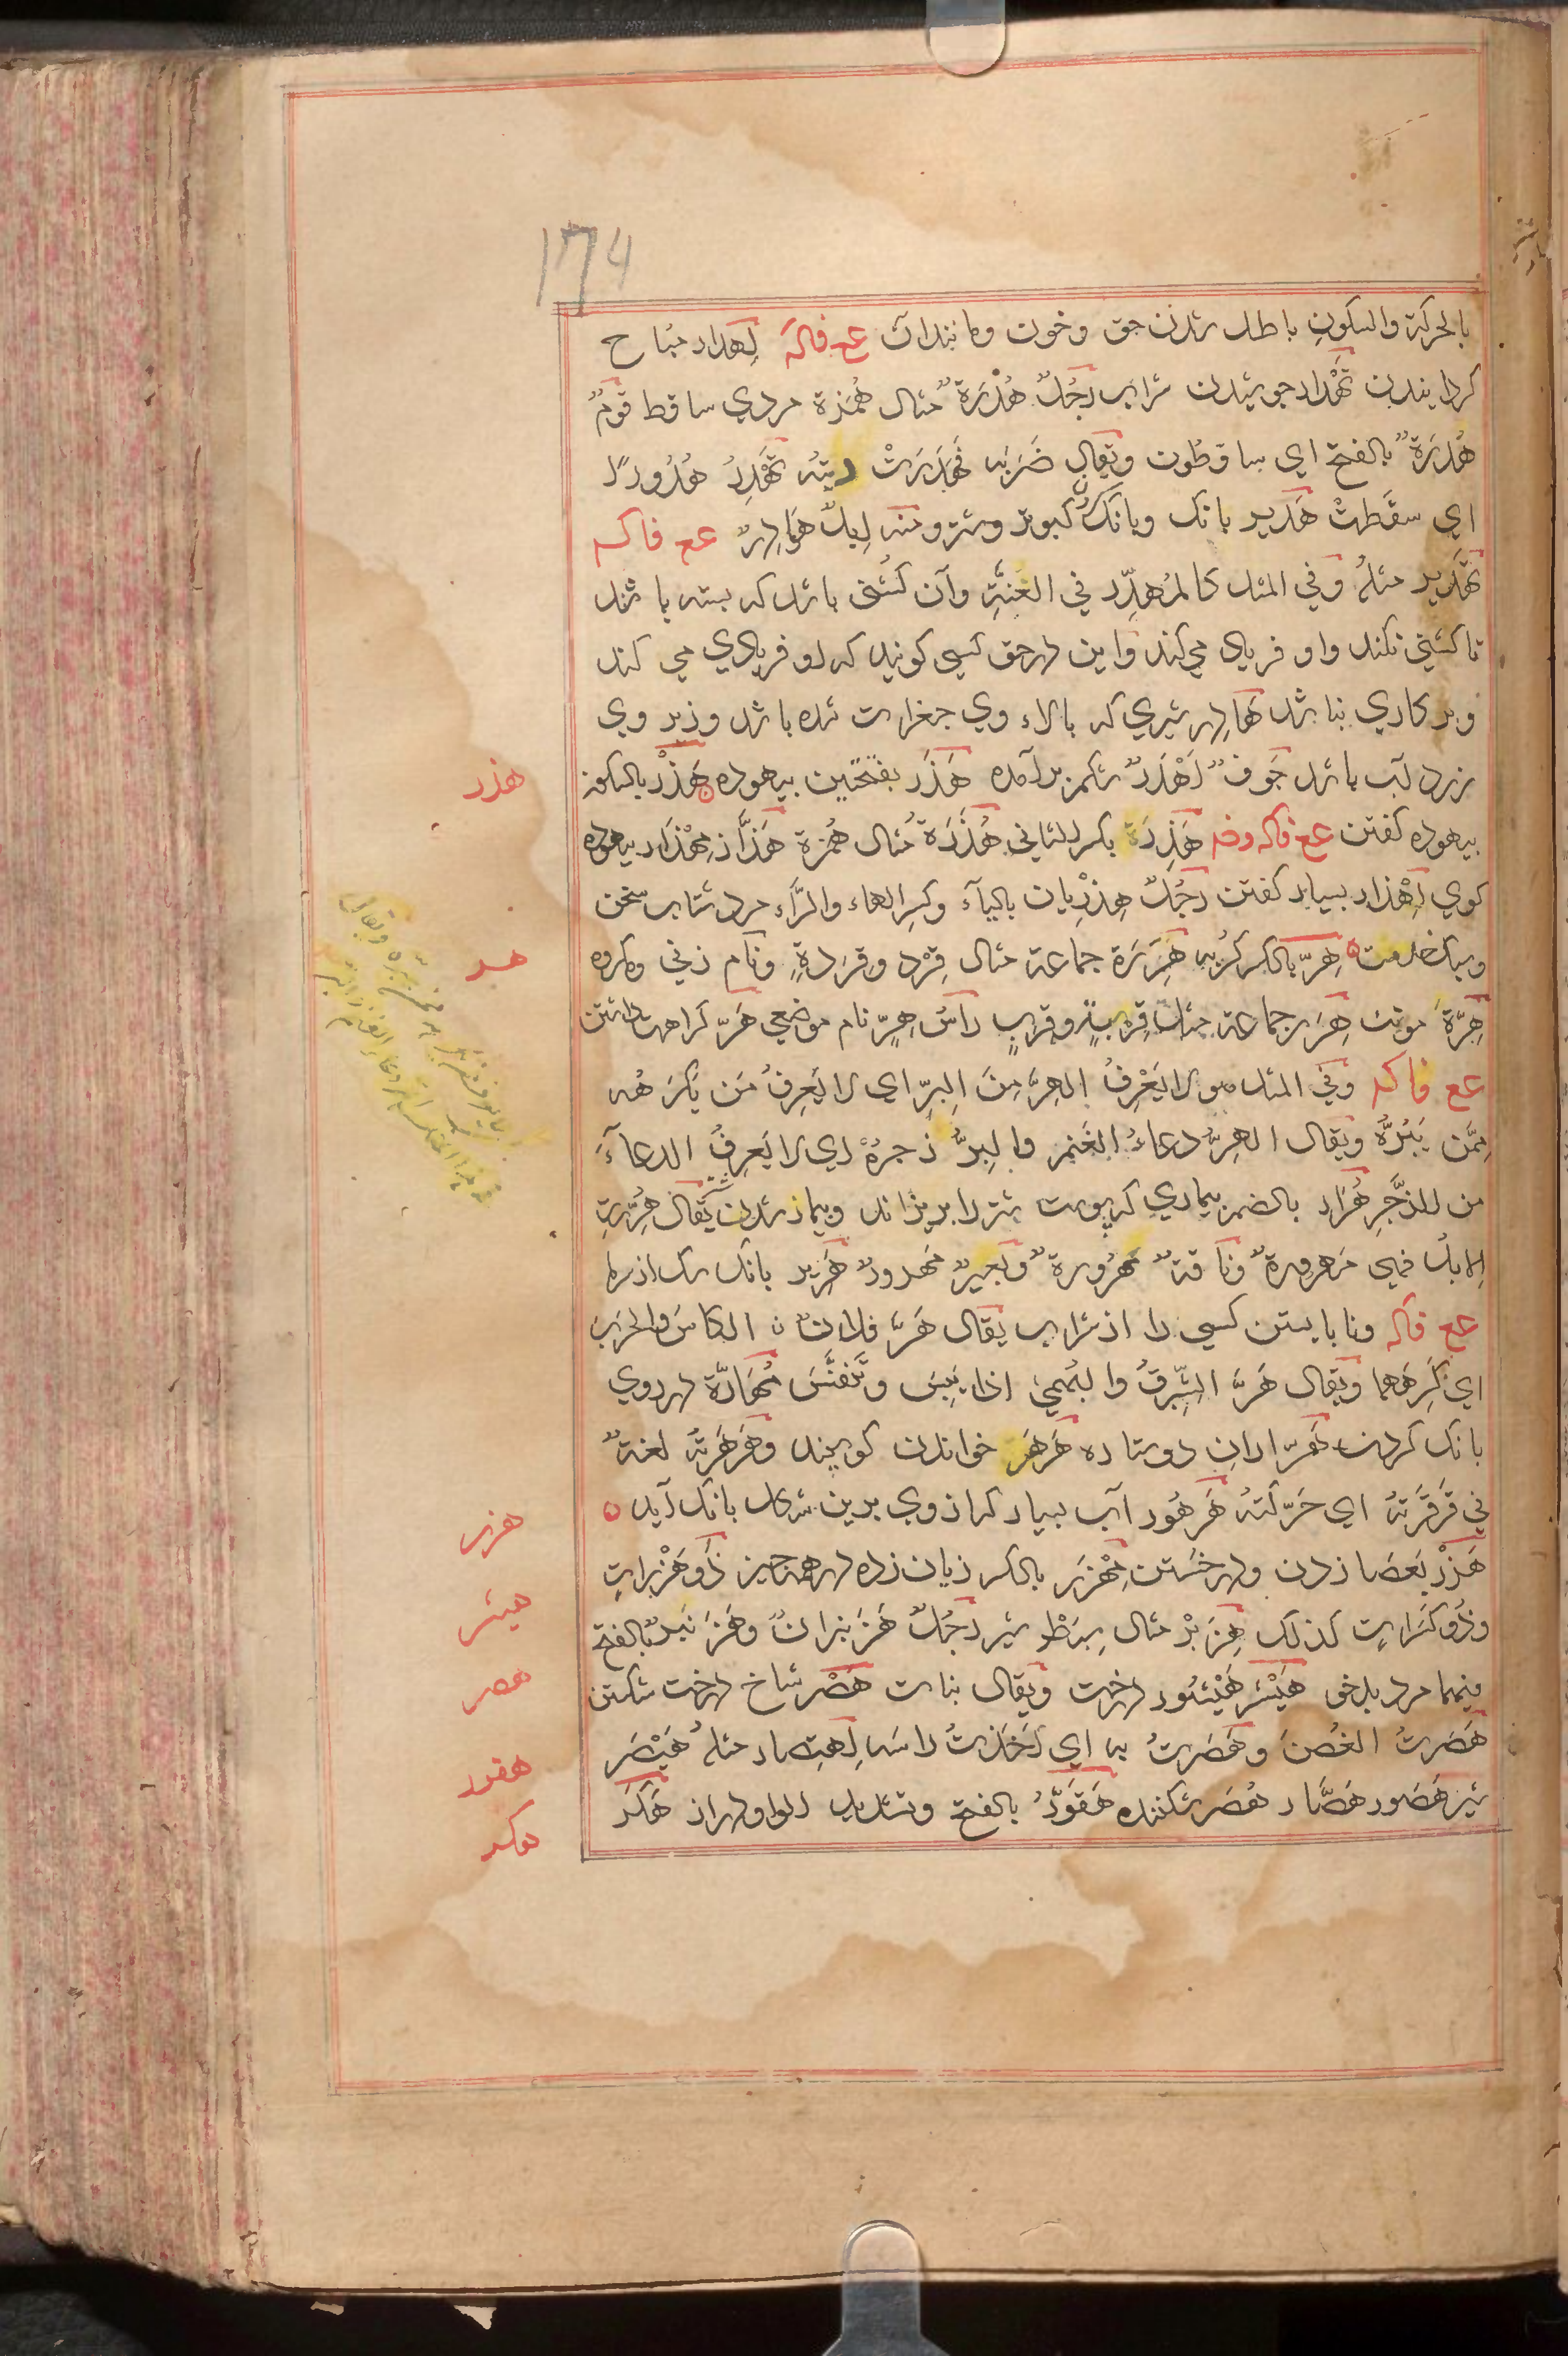 174
بالحركة والسكون باطل شدن حق وخون ومانندآن عع فاكه اِهدار مباح
كردانيدن تَهْدار جوشيدن شراب رَجُلٌ هُدَرَةٌ مثال هُمَزة مردي ساقط قومٌ
هُدَرَةٌ بالفتح اي ساقطون ويقال ضَرَبَه فَهَدَرَتْ ديتُه تَهْدِرُ هُدُورًا
اي سقَطَتْ هَدير بانك وبانك كبوتر وشتر ومنه اِبِلٌ هَوادِرُ عع فاكه
تَهدير مثلُه وفي المثل كالمُهدِّر في العُنَّةِ وآن كشني باشد كه بسته باشد
تا كشني نكند واو فرياد مي كند واين در حق كسي كويند كه او فريادي مي كند
وبر كاري نباشد هَادِر شيري كه بالاء وي جغرات شده باشد وزير وي
زرد آب باشد جَوفٌ اَهْدَرُ شكم برآمده هَذَر بفتحتين بيهوده هَذْر بالسكون
بيهوده كفتن عع فاكه وضم هَذِرَة بكسر الثاني هُذَرَة مثال هُمزة هَذَّار مِهْذَار بيهوده
كوي اِهْذار بسيار كفتن رَجُلٌ هِذْرِيان بالياء وكسر الهاء والرّاء مرد شتاب سخن
وسبك خدمت هِرّ بالكسر كربه هِرَرَة جماعة مثال قِرْد وقِرَدةٍ ونام زني ومكروه
هِرَّة مونث هِرَر جماعة مثل قِرْبَةٍ وقِرَبٍ رَاسُ هِرٍّ نام موضعي هَرّ كراهت داشتن
عع فاكه وفي المثل هو لا يَعْرِفُ الهِرَّ مِنَ البِرِّ اي لا يَعرِفُ مَن يَكرَهُه
مِمَّن يَبُرُّه ويقال الهِرُّ دعاءُ الغَنم والبِرُّ زجرُهُ اي لا يَعرِفُ الدعاءَ
من الزَّجرِ هُرَار بالضم بيماري كه پوست شتر را بريزاند وبيمار شدن يقال هُرَّتِ
الابلُ فهي مَهرورةٌ وناقةٌ مَهرُورةٌ وبَعيرٌ مَهرورٌ هَرِير بانك سك از سرما
عع فاكه ونابايستن كسي را از شراب يقال هَرَّ فلانٌ الكاسَ والحَرْبَ
اي كَرِهَهما ويقال هَرَّ الشِّبرِقُ والبُهمىٰ اذا يَبِسَ وتَنَفَّسَ مُهَارّة در روي
بانك كردن هَرّاران دوستاره هَرهَر خواندن كوسپند وهَرهَرتُه لغةٌ
في قَرقَرتُه اي حَرّكتُه هُرهُور آب بسيار كه از وي بدين شكل بانك آيد
هَزْر بعَصا زدن ودر خستن مِهْزَر بالكسر زيان زده در همه چيز ذُو هَزَراتٍ
وذُو كَسَراتٍ كذلك هِزَبْر مثال سِبَطْر شير رجُلٌ هَزَنبَرانٌ وهَزَنْبَرٌ بالفتح
فيهما مرد بدخو هَيْشَر هَيْشُور درخت ويقال نبات هَصْر شاخ درخت شكستن
هَصَرتُ الغُصنَ وهَصَرتُ به اي اَخَذتُ راسَه اِهتِصار مثلُه هَيْصَر
شير هَصُور هَصَّار هُصَر شكننده هَقَوَّرُ بالفتح وتشديد الواو دراز هَكَر
هذر
هر
هزر
هيشر
هصر
هقور
هكر